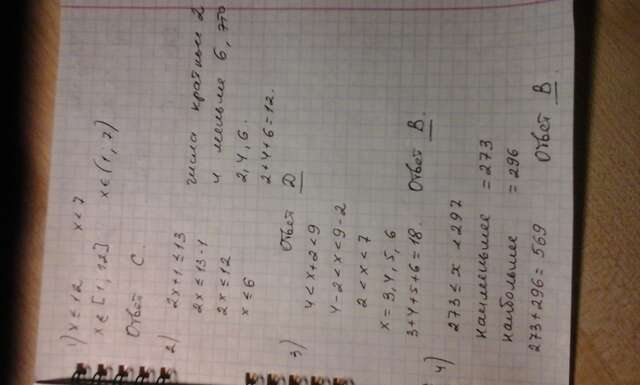 1) x ≤ 12   x < 7
x ∈ [1; 12]   x ∈ (1; 7)
Ответ C.
2) 2x+1 ≤ 13
2x ≤ 13-1
2x ≤ 12
x ≤ 6
числа кратные 2
и меньше 6, это
2, 4, 6.
2+4+6=12.
Ответ Д
3) 4 < x+2 < 9
4-2 < x < 9-2
2 < x < 7
x = 3, 4, 5, 6
3+4+5+6=18. Ответ В.
4) 273 ≤ x < 297
наименьшее = 273
наибольшее = 296
273+296= 569
Ответ В.